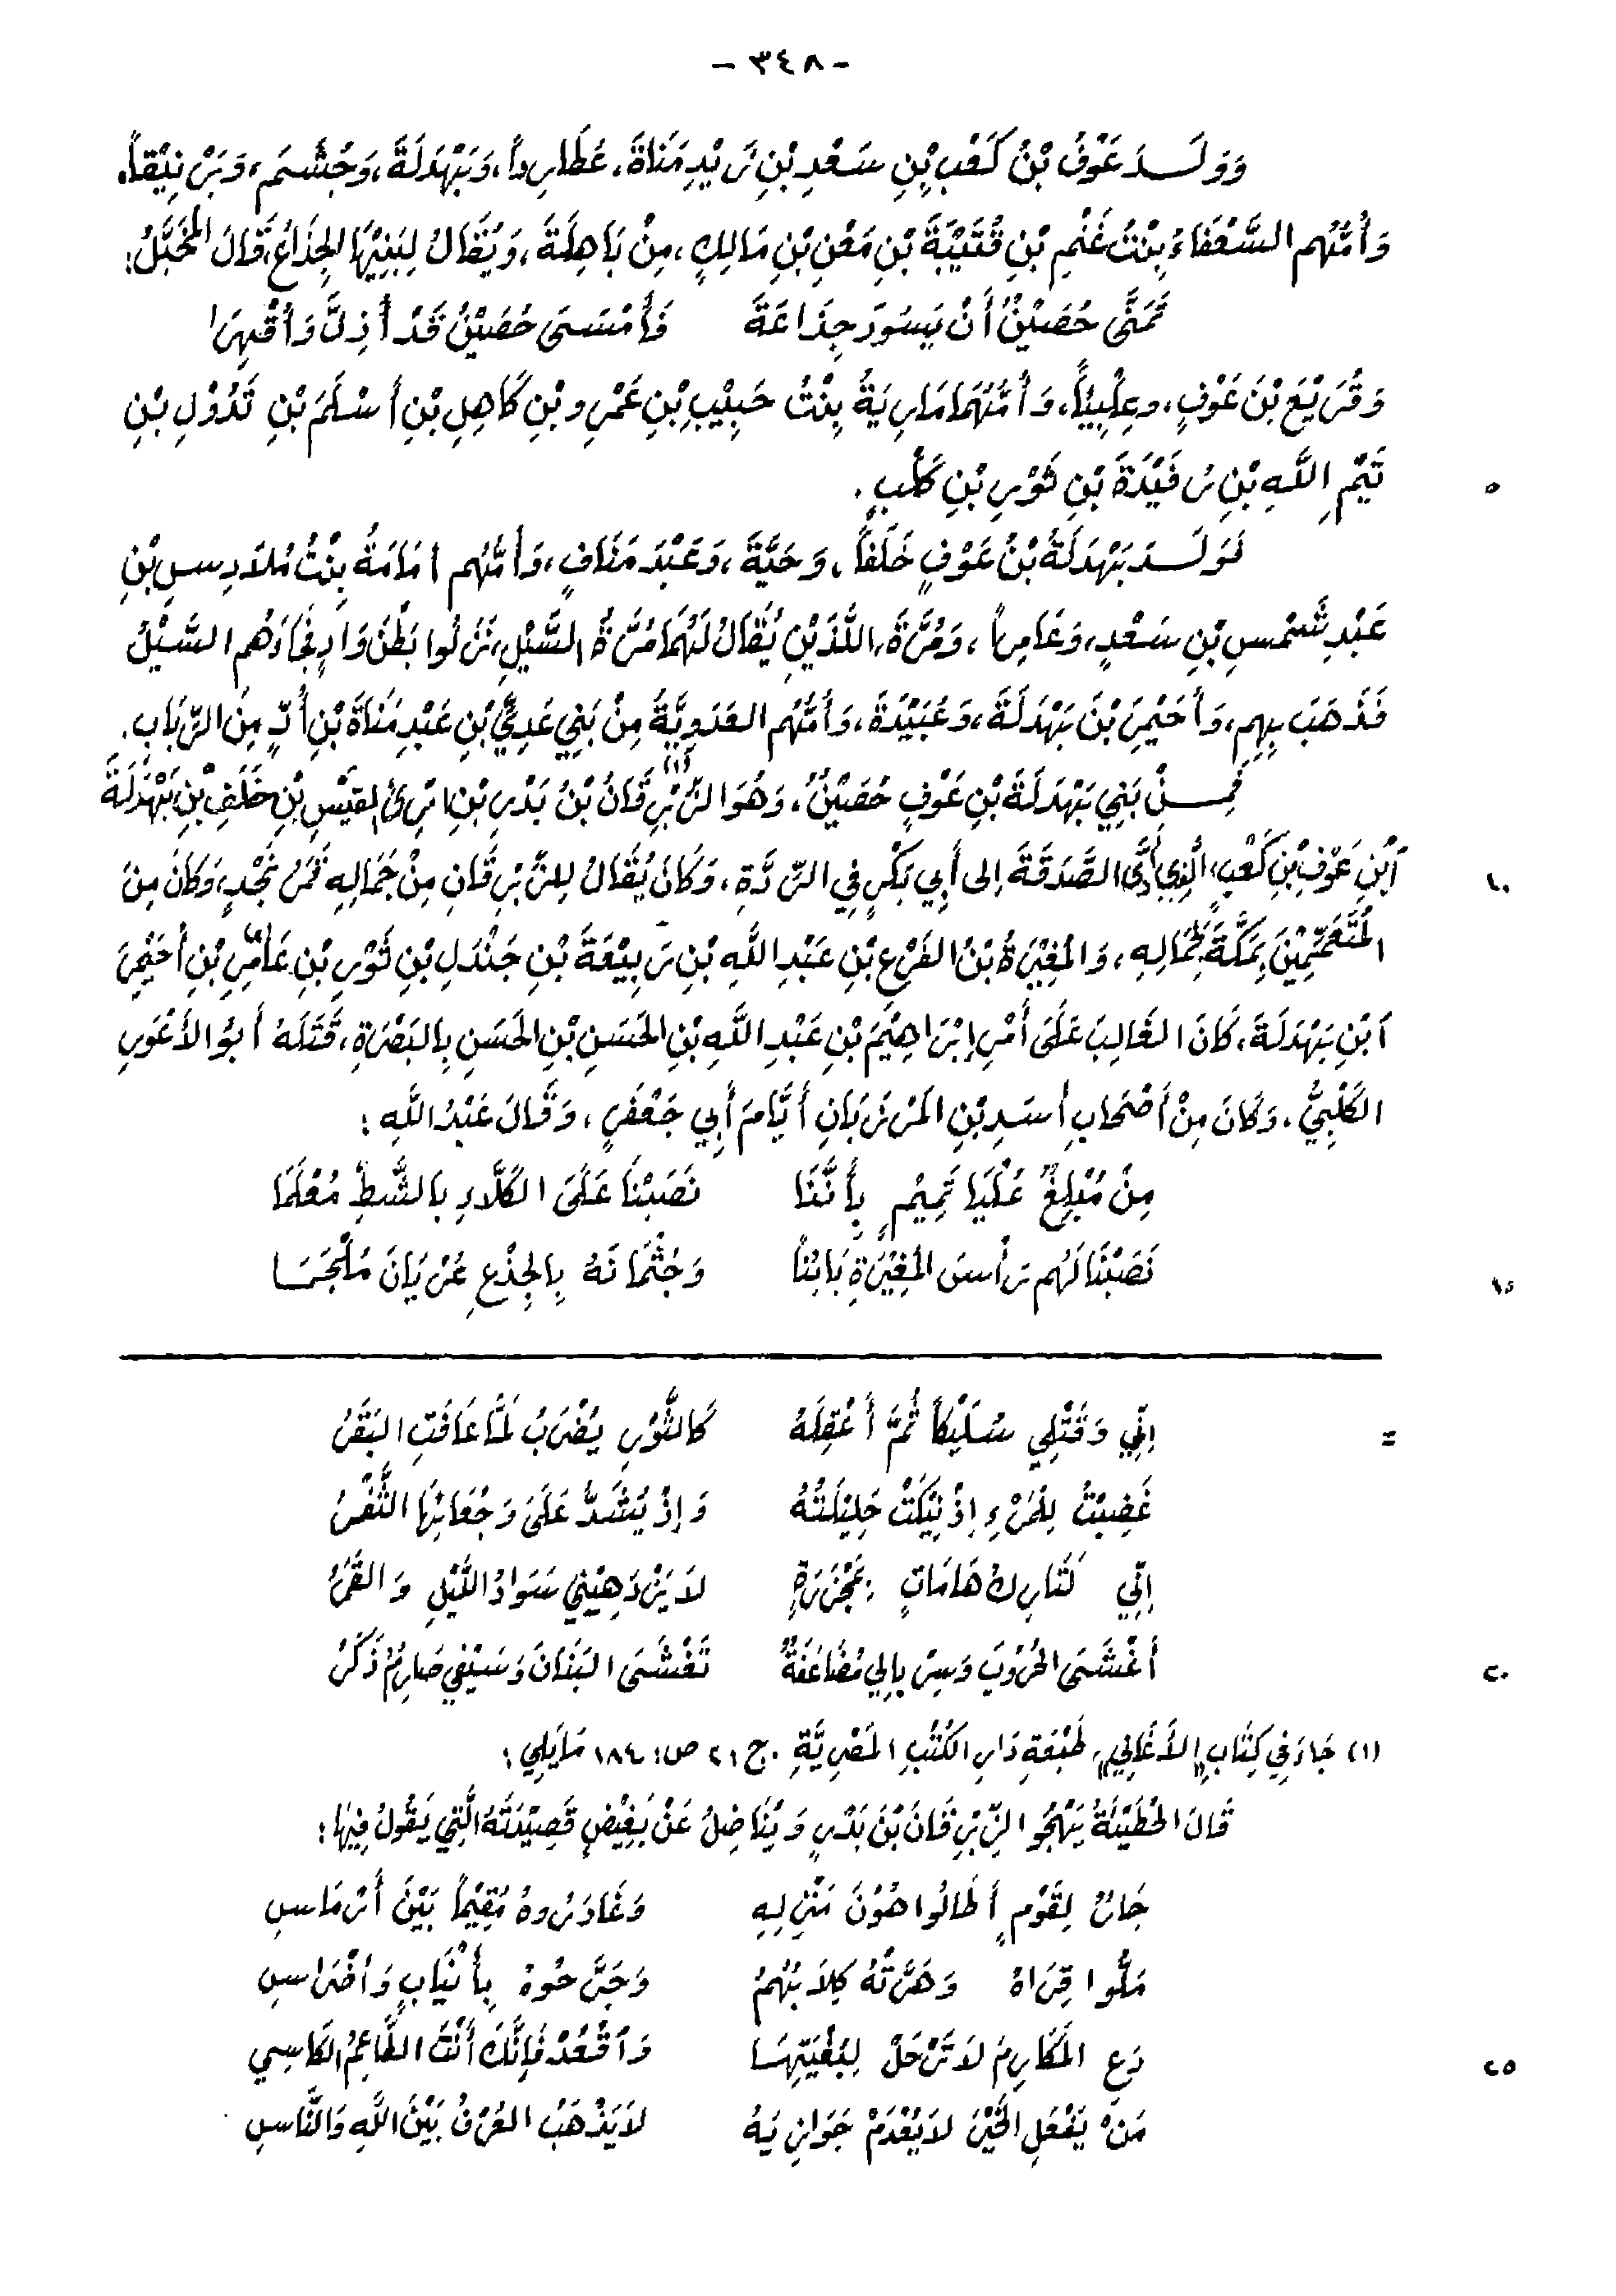 - ٣٤٨ -
وَوَلَدَ عَوْفُ بْنُ كَعْبِ بْنِ سَعْدِ بْنِ زَيْدِ مَنَاةَ، عُطَارِداً، وَبَهْدَلَةَ، وَجُشَمَ، وَبَرْنِيْقاً،
وَأُمُّهُم السَّعْفَاءُ بِنْتُ غَنْمِ بْنِ قُتَيْبَةَ بْنِ مَعْنِ بْنِ مَالِكٍ، مِنْ بَاهِلَةَ، وَيُقَالُ لِبَنِيْهَا الجِذَاعُ، قَالَ المُخَبَّلُ:
تَمَنَّى حُصَيْنٌ أَنْ يَسُودَ جِذَاعَةً فَأَمْسَى حُصَيْنٌ قَدْ أُذِلَّ وَأُقْهِرَا
وَقُرَيْعَ بْنَ عَوْفٍ، وعِلْبِيّاً، وَأُمُّهُمَا مَارِيَةُ بِنْتُ حَبِيْبِ بْنِ عَمْرِو بْنِ كَاهِلِ بْنِ أَسْلَمَ بْنِ تَدُوْلِ بْنِ
تَيْمِ اللَّهِ بْنِ رُفَيْدَةَ بْنِ ثَوْرِ بْنِ كَلْبٍ. ٥
فَوَلَدَ بَهْدَلَةُ بْنُ عَوْفٍ خَلَفاً، وَحَيَّةَ، وَعَبْدَ مَنَافٍ، وَأُمُّهُم أُمَامَةُ بِنْتُ مُلاَدِسِ بْنِ
عَبْدِ شَمْسِ بْنِ سَعْدٍ، وَعَامِراً، وَمُرَّةَ، اللَّذَيْنِ يُقَالُ لَهُمَا مُرَّةُ السَّيْلِ، نَزَلُوا بَطْنَ وَادٍ فَجَاءَهُم السَّيْلُ
فَذَهَبَ بِهِم، وَأُحَيْمِرَ بْنَ بَهْدَلَةَ، وَعُبَيْدَةَ، وَأُمُّهُم العَدَوِيَّةُ مِنْ بَنِي عَدِيِّ بْنِ عَبْدِ مَنَاةَ بْنِ أُدٍّ مِنَ الرِّبَابِ.
فَمِنْ بَنِي بَهْدَلَةَ بْنِ عَوْفٍ حُصَيْنٌ، وَهُوَ الزِّبْرِقَانُ(١) بْنُ بَدْرِ بْنِ امْرِئِ القَيْسِ بْنِ خَلَفِ بْنِ بَهْدَلَةَ
ٱبْنِ عَوْفِ بْنِ كَعْبٍ، الَّذِي أَدَّى الصَّدَقَةَ إلى أَبِي بَكْرٍ فِي الرِّدَّةِ، وَكَانَ يُقَالُ لِلزِّبْرِقَانِ مِنْ جَمَالِهِ قَمَرُ نَجْدٍ، وَكَانَ مِنَ ١٠
المُتَعَمِّمِيْنَ بِمَكَّةَ لِجَمَالِهِ، وَالمُغِيْرَةُ بْنُ الفَزِعِ بْنِ عَبْدِ اللَّهِ بْنِ رَبِيْعَةَ بْنِ جَنْدَلِ بْنِ ثَوْرِ بْنِ عَامِرِ بْنِ أُحَيْمِرَ
ٱبْنِ بَهْدَلَةَ، كَانَ الغَالِبَ عَلَى أَمْرِ إِبْرَاهِيْمَ بْنِ عَبْدِ اللَّهِ بْنِ الحَسَنِ بْنِ الحَسَنِ بِالبَصْرَةِ، قَتَلَهُ أَبُو الأَعْوَرِ
الكَلْبِيُّ، وَكَانَ مِنْ أَصْحَابِ أَسَدِ بْنِ المَرْزُبَانِ أَيَّامَ أَبِي جَعْفَرٍ، وَقَالَ عَبْدُ اللَّهِ:
مِنْ مُبْلِغٌ عُلْيَا تَمِيْمٍ بِأَنَّنَا نَصَبْنَا عَلَى الكَلَّاءِ بِالشَّطِّ مُعْلَمَا
نَصَبْنَا لَهُم رَأْسَ المُغِيْرَةِ بَائِناً وَجُثْمَانَهُ بِالجِذْعِ عُرْيَانَ مُلْجَمَا ١٥
= إِنِّي وَقَتْلِي سُلَيْكاً ثُمَّ أَعْقِلَهُ كَالثَّوْرِ يُضْرَبُ لَمَّا عَافَتِ البَقَرُ
غَضِبْتُ لِلْمَرْءِ إِذْ نِيْكَتْ حَلِيْلَتُهُ وَإِذْ يُشَدُّ عَلَى وَجْعَائِهَا الثَّفْرُ
إِنِّي لَتَارِكُ هَامَاتٍ بِمَجْزَرَةٍ لاَ يَزْدَهِيْنِي سَوَادُ اللَّيْلِ وَالقَمَرُ
أَغْشَى الحُرُوبَ وَسِرْبَالِي مُضَاعَفَةٌ تَغْشَى البَنَانَ وَسَيْفِي صَارِمٌ ذَكَرُ ٢٠
(١) جَاءَ فِي كِتَابِ «الأَغَانِي» طَبْعَةِ دَارِ الكُتُبِ المَصْرِيَّةِ. ج ٢١ ص: ١٨٤ مَا يَلِي:
قَالَ الحُطَيْئَةُ يَهْجُو الزِّبْرِقَانَ بْنَ بَدْرٍ وَيُنَاضِلُ عَنْ بَغِيْضٍ قَصِيْدَتَهُ الَّتِي يَقُولُ فِيْهَا:
جَارٌ لِقَوْمٍ أَطَالُوا هُوْنَ مَنْزِلِهِ وَغَادَرُوهُ مُقِيْماً بَيْنَ أَرْمَاسِ
مَلُّوا قِرَاهُ وَهَرَّتْهُ كِلاَبُهُمُ وَجَرَّحُوهُ بِأَنْيَابٍ وَأَضْرَاسِ
دَعِ المَكَارِمَ لاَ تَرْحَلْ لِبُغْيَتِهَا وَٱقْعُدْ فَإِنَّكَ أَنْتَ الطَّاعِمُ الكَاسِي ٢٥
مَنْ يَفْعَلِ الخَيْرَ لاَ يُعْدَمْ جَوَازِيَهُ لاَ يَذْهَبُ العُرْفُ بَيْنَ اللَّهِ وَالنَّاسِ